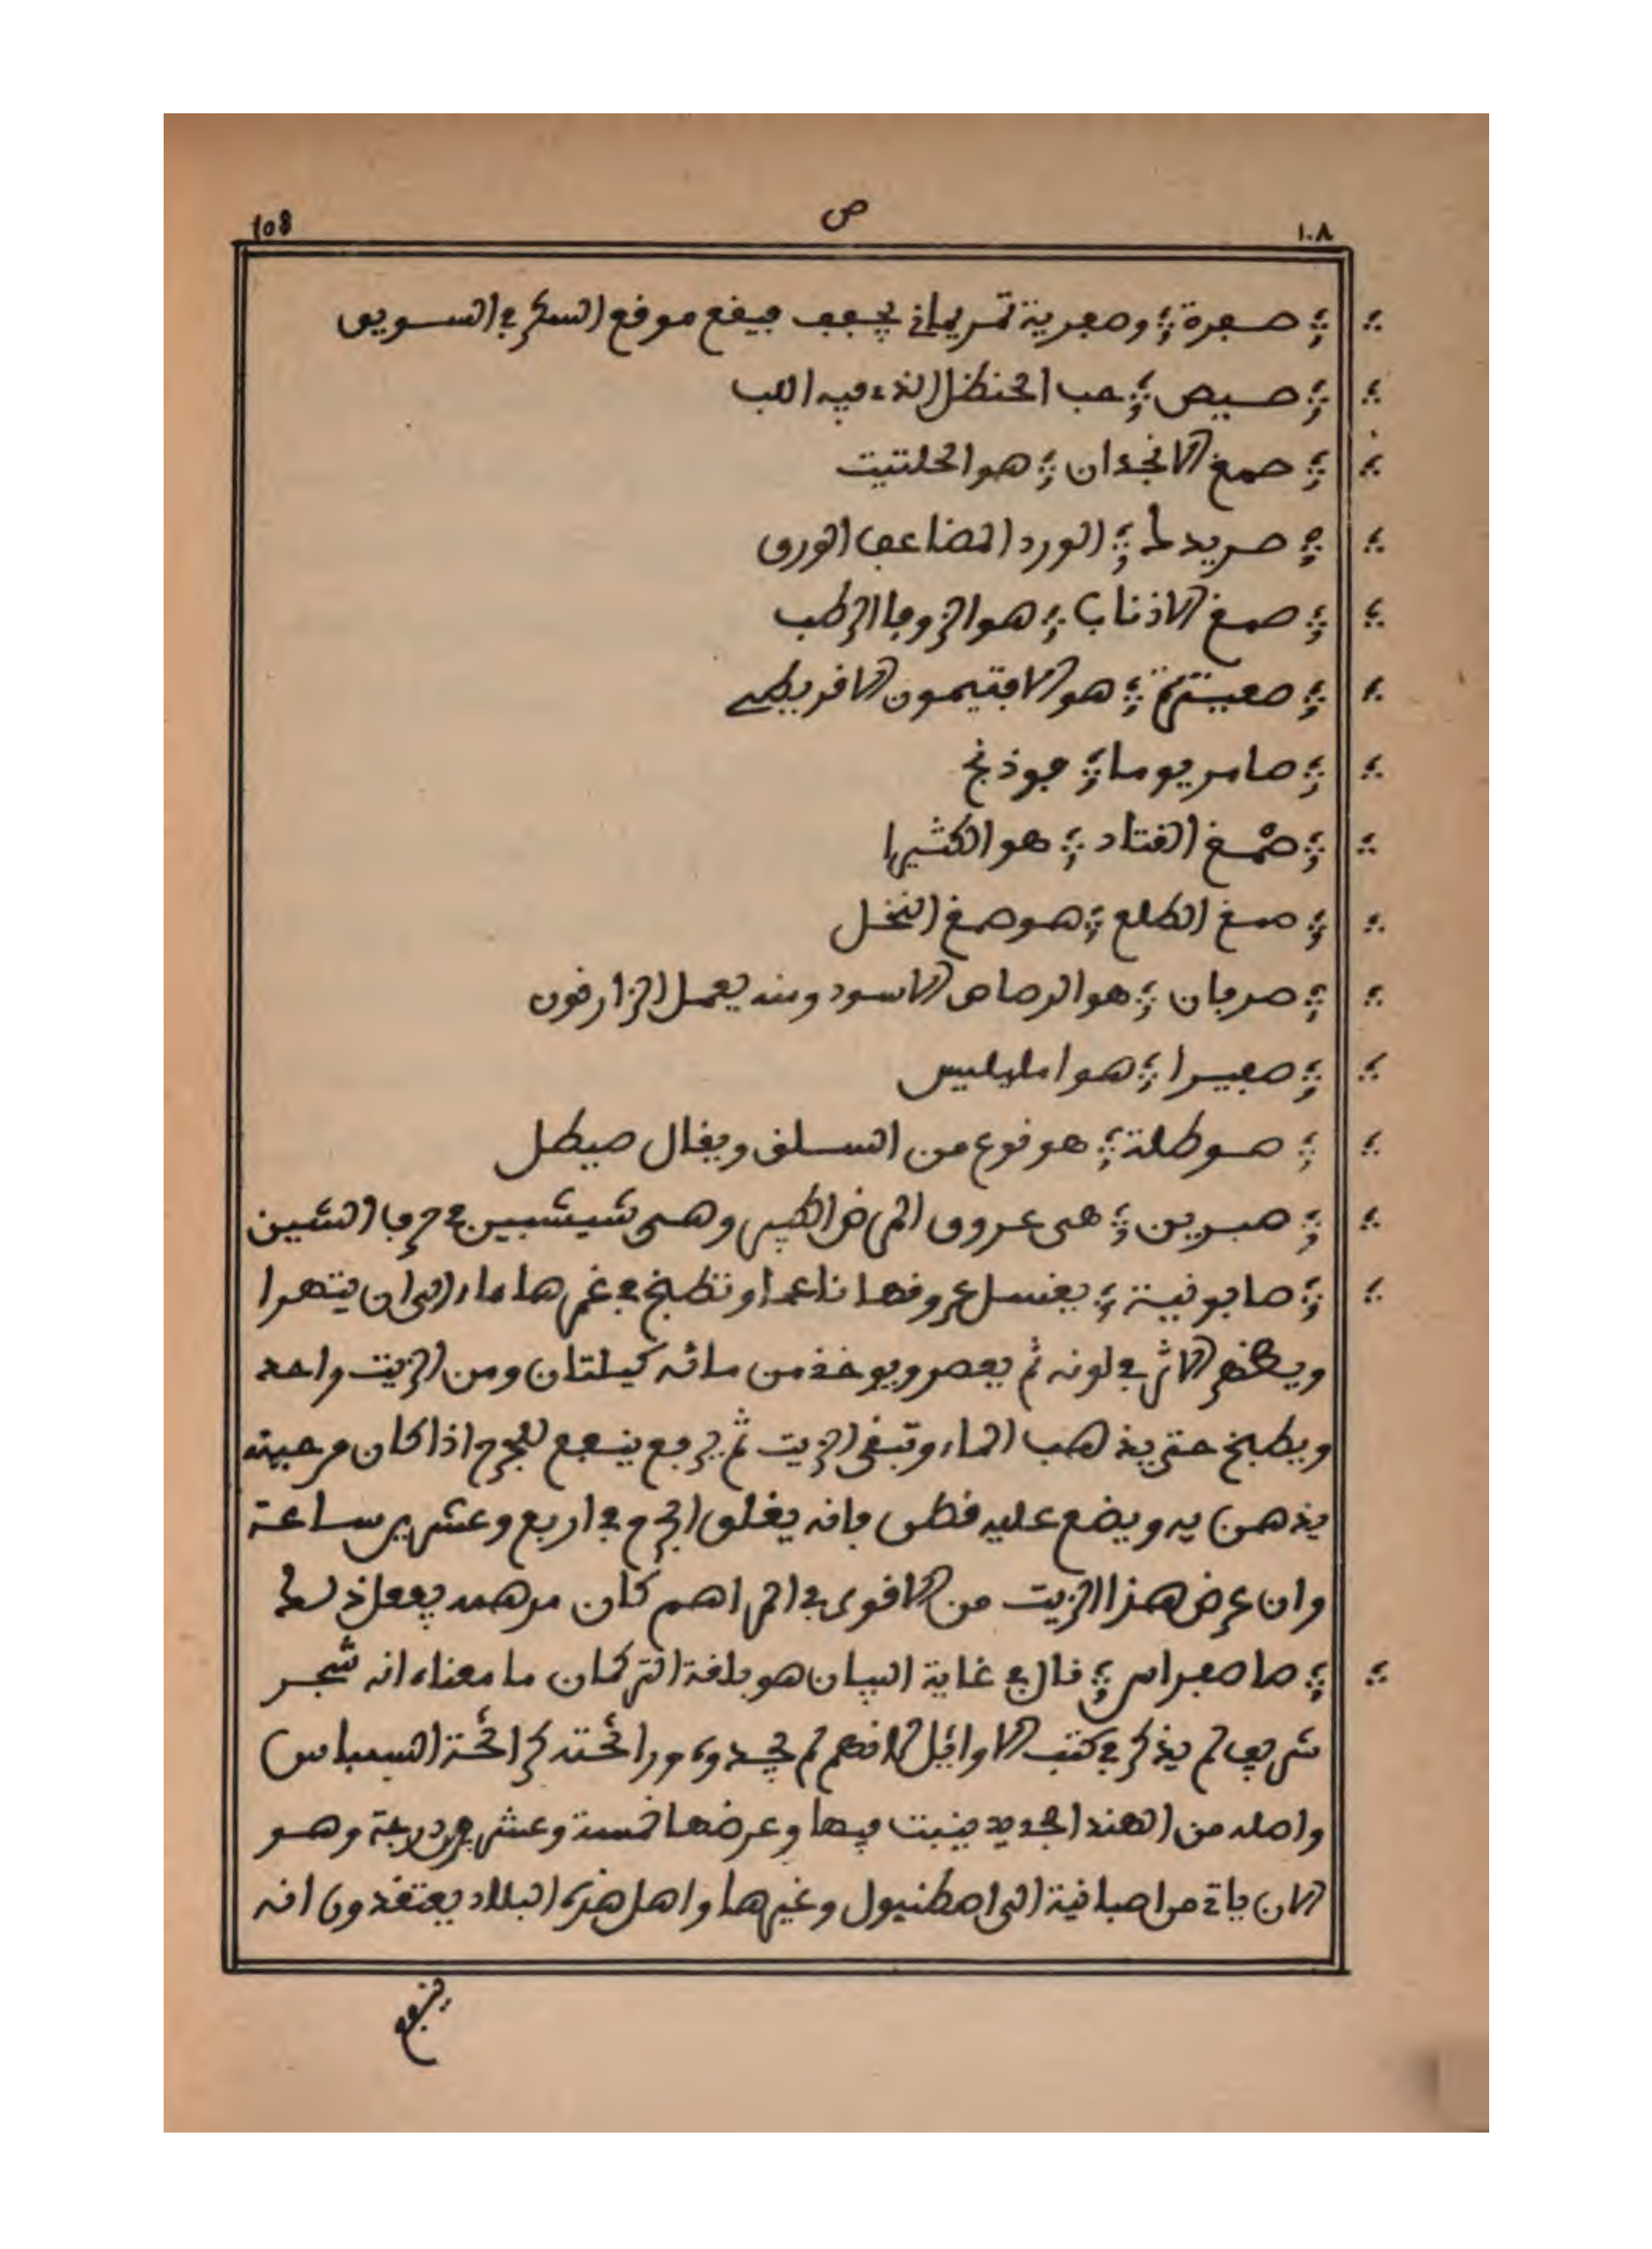 108 ص ١٠٨
صفرة وصفرية تمر يماني يجفف فيقع موقع السكر في السويق
صيص حب الحنظل الذي فيه اللب
صمغ الانجدان هو الحلتيت
الورد المضاعف الورق
صمغ الاذناب هو الزوفا الرطب
هو الافتيمون الاقريطي
صامريوما فوذنج
صمغ القتاد هو الكثيرا
صمغ الطلع هو صمغ النخل
صرفان هو الرصاص الاسود ومنه يعمل الزارقون
صفيرا هو امليليس
صوطلة هو نوع من السلق ويقال صيطل
صبرين هي عروق وهي شيشبين في حرف الشين
صابونية يغسل عروقها ناعما وتطبخ في غمرها ماء الى ان يتهرا
ويظهر الاثر في لونه ثم يعصر ويوخذ من مائه كيلتان ومن الزيت واحد
ويطبخ حتى يذهب الماء وتبقى الزيت ثم يرفع ينفع للجرح اذا كان
يذهن به ويضع عليه قطن فانه يغلق الجرح في اربع وعشرين ساعة
وان عرض هذا الزيت من الاقوى في المراهم كان مرهمه يفعل ذلك
صاصفراس قال في غاية البيان هو بلغة التركمان ما معناه انه شجر
شريف لم يذكر في كتب الاوايل لانهم لم يجدوه ورائحته كرائحة البسباس
واصله من الهند الجديد ينبت فيها وعرضها خمسة وعشرون درجة وهو
الان ياتي من اصبانية الى اصطنبول وغيرها واهل هذه البلاد يعتقدون انه
ينفع